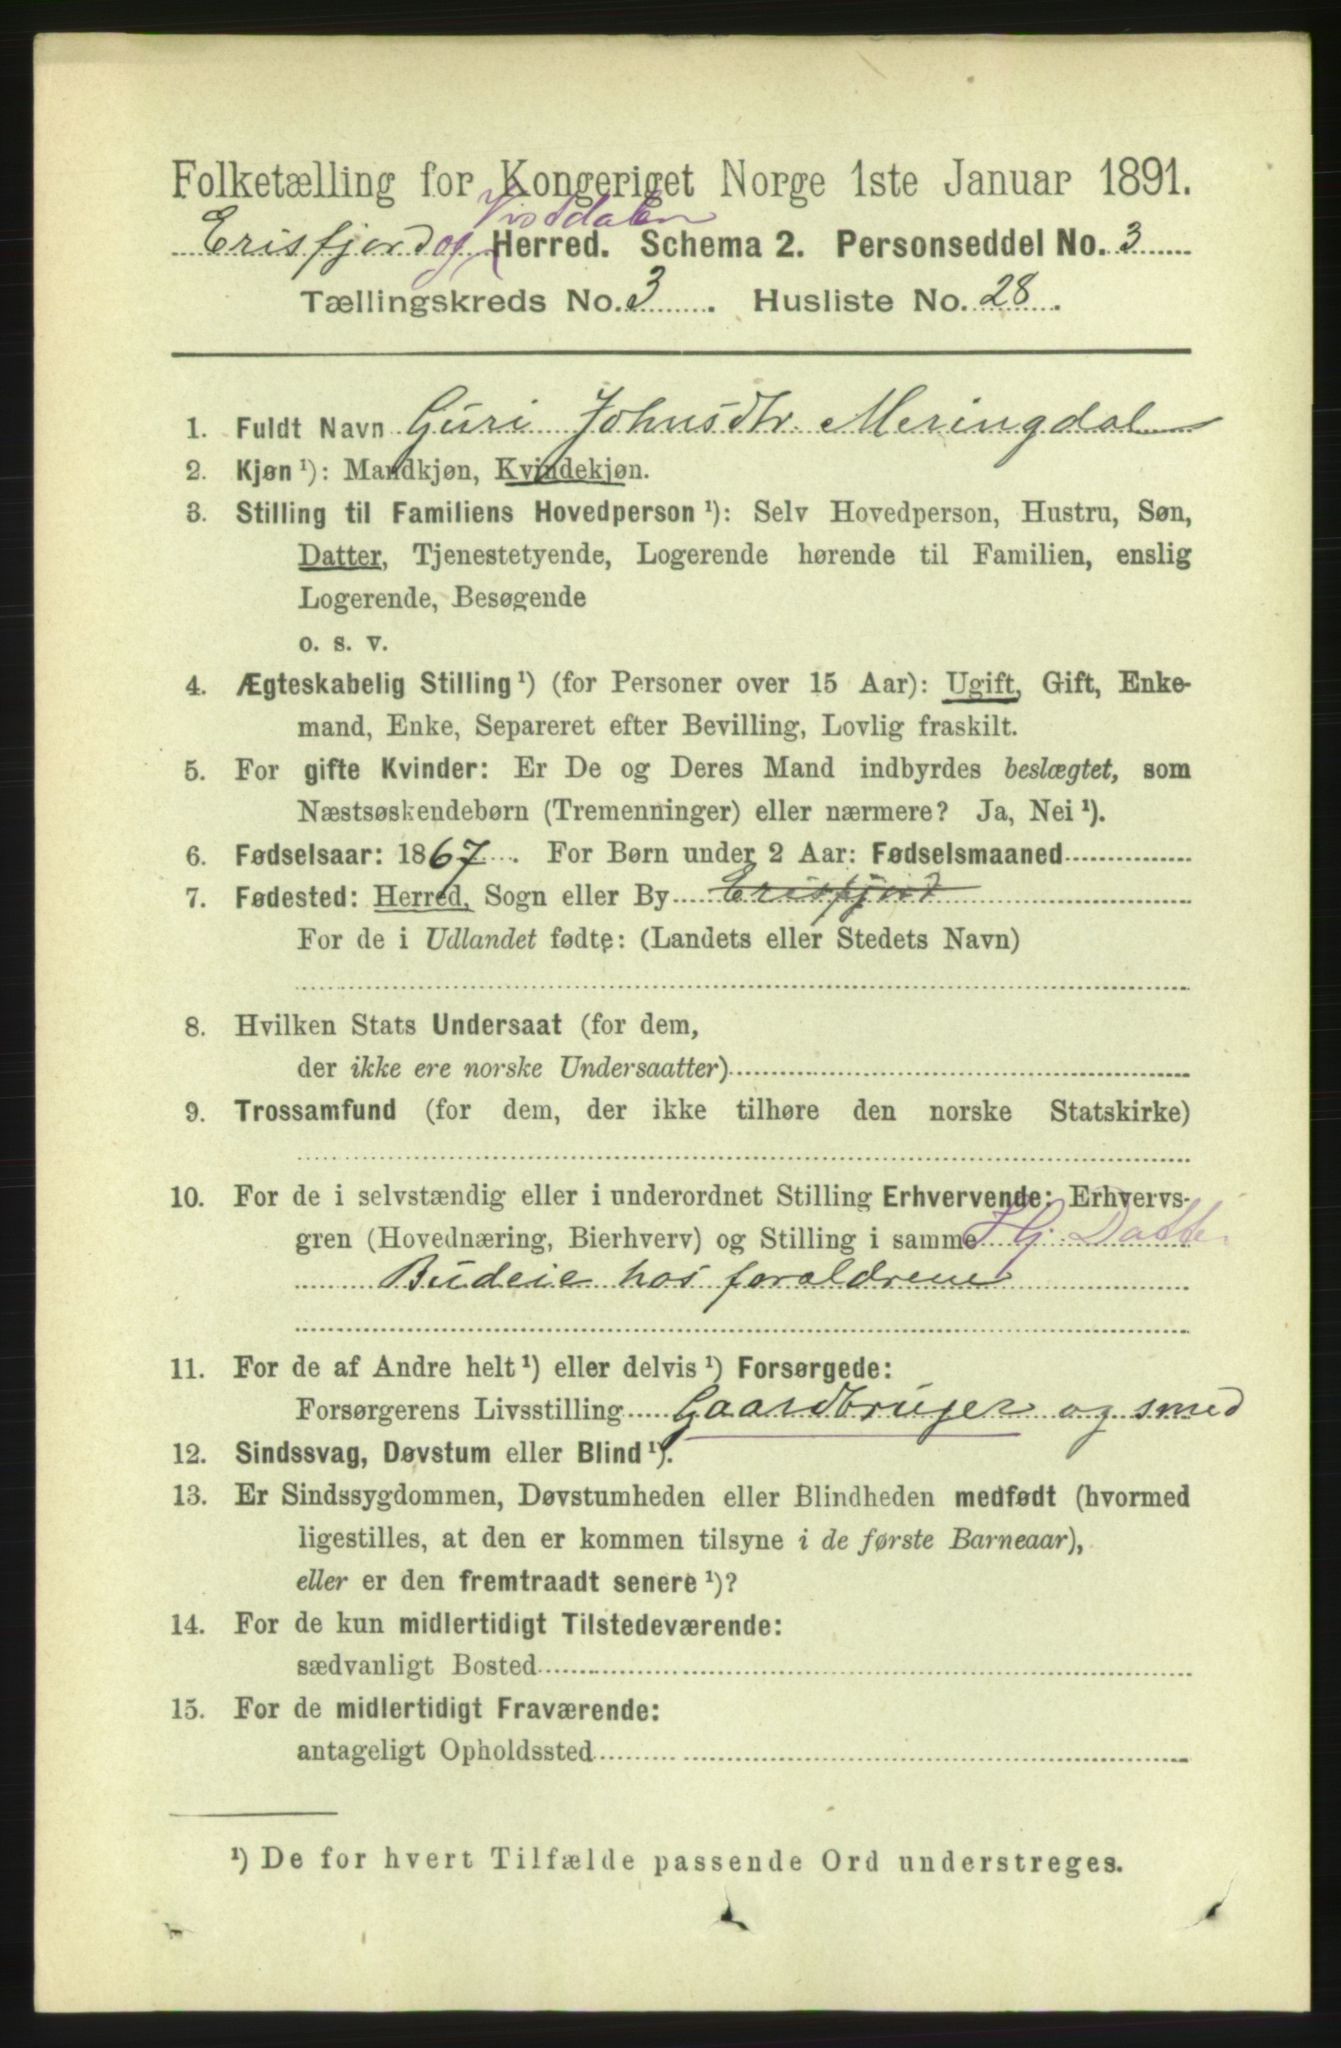 Folketælling for Kongeriget Norge 1ste Januar 1891.
Erisfjord og Vistdalen Herred. Schema 2. Personseddel No. 3
Tællingskreds No. 3. Husliste No. 28.
1. Fuldt Navn Guri Johnsdtr. Meringdal
2. Kjøn ¹): Mandkjøn, Kvindekjøn.
3. Stilling til Familiens Hovedperson ¹): Selv Hovedperson, Hustru, Søn,
Datter, Tjenestetyende, Logerende hørende til Familien, enslig
Logerende, Besøgende
o. s. v.
4. Ægteskabelig Stilling ¹) (for Personer over 15 Aar): Ugift, Gift, Enke-
mand, Enke, Separeret efter Bevilling, Lovlig fraskilt.
5. For gifte Kvinder: Er De og Deres Mand indbyrdes beslægtet, som
Næstsøskendebørn (Tremenninger) eller nærmere? Ja, Nei ¹).
6. Fødselsaar: 1867. For Børn under 2 Aar: Fødselsmaaned
7. Fødested: Herred, Sogn eller By Erisfjord
For de i Udlandet fødte: (Landets eller Stedets Navn)
8. Hvilken Stats Undersaat (for dem,
der ikke ere norske Undersaatter)
9. Trossamfund (for dem, der ikke tilhøre den norske Statskirke)
10. For de i selvstændig eller i underordnet Stilling Erhvervende: Erhvervs-
gren (Hovednæring, Bierhverv) og Stilling i samme Hj. Datter
Budeie hos forældrene
11. For de af Andre helt ¹) eller delvis ¹) Forsørgede:
Forsørgerens Livsstilling Gaardbruger og smed
12. Sindssvag, Døvstum eller Blind ¹).
13. Er Sindssygdommen, Døvstumheden eller Blindheden medfødt (hvormed
ligestilles, at den er kommen tilsyne i de første Barneaar),
eller er den fremtraadt senere ¹)?
14. For de kun midlertidigt Tilstedeværende:
sædvanligt Bosted
15. For de midlertidigt Fraværende:
antageligt Opholdssted
¹) De for hvert Tilfælde passende Ord understreges.